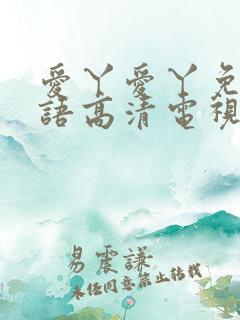 愛丫愛丫免
語高清電視
易震謙
未经同意禁止转载